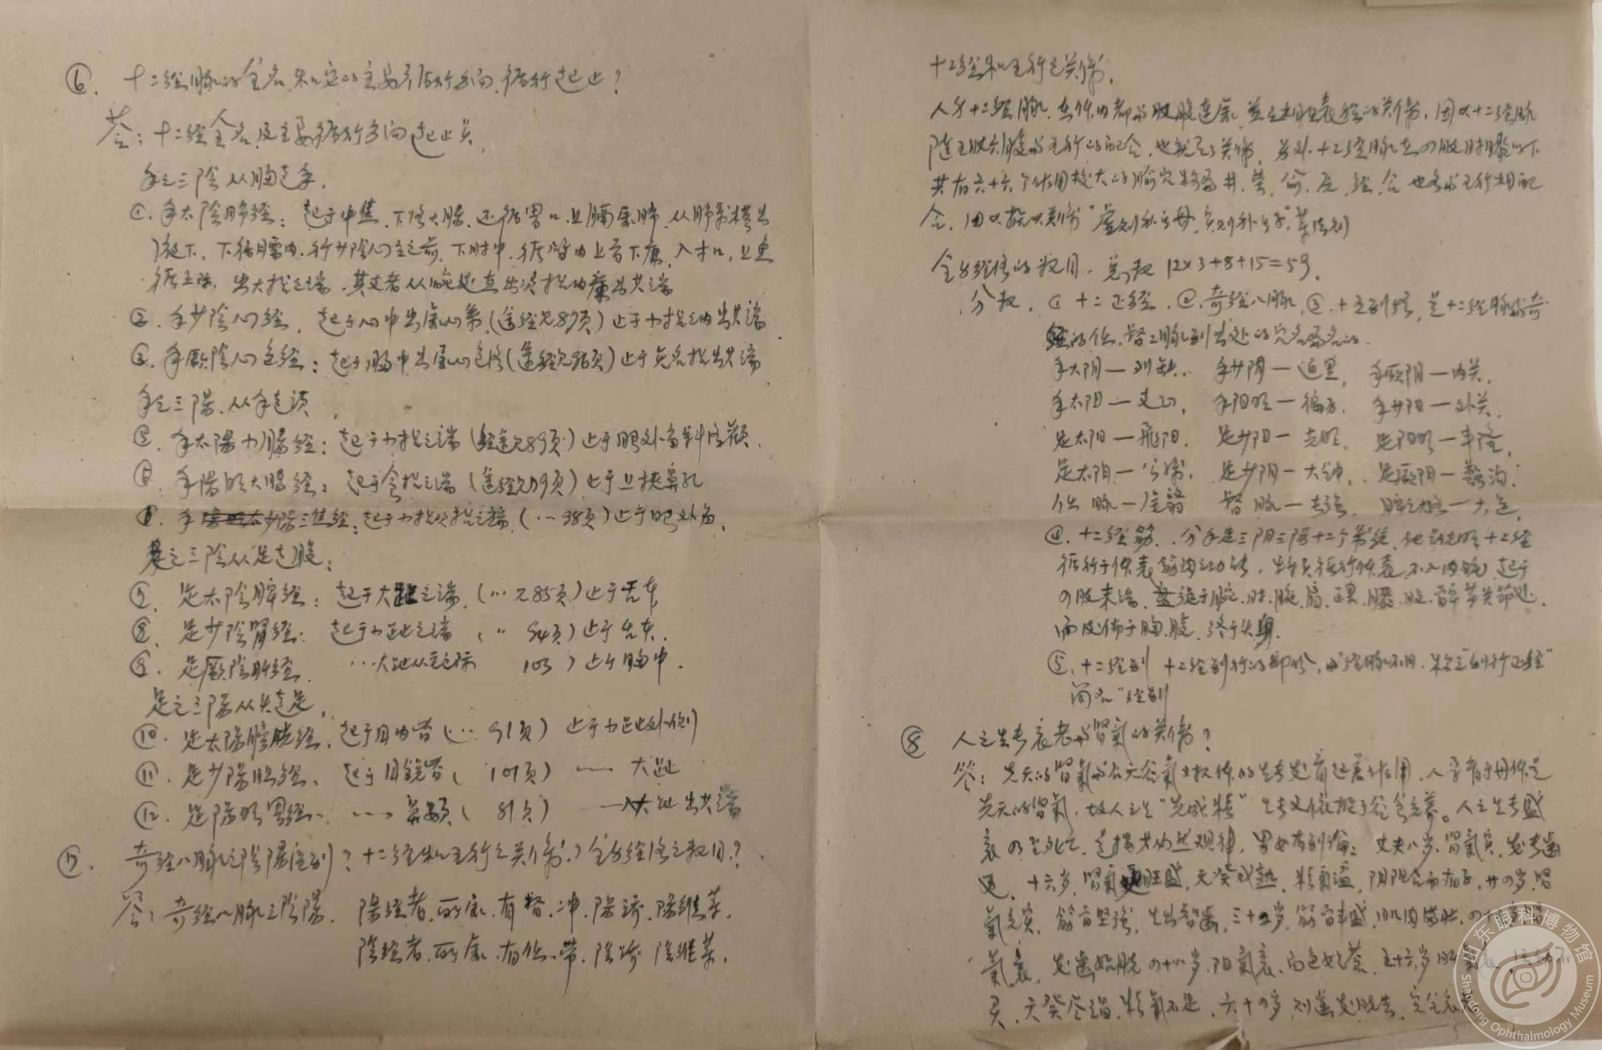 ⑥. 十二经脉的全名和它的主要循行方向,循行起止?
答:十二经全名及主要循行方向起止点,
手之三陰从胸走手,
①.手太陰肺经:起于中焦,下络大腸,还循胃口,上膈属肺,从肺系横出
腋下,下循臑内,行少陰心主之前,下肘中,循臂内上骨下廉,入寸口,上鱼
循鱼际,出大指之端,其支者从腕后直出次指内廉出其端
②.手少陰心经,起于心中出属心系(途经见87页)止于小指之内出其端
③.手厥陰心包经:起于胸中出属心包络(途经见96页)止于无名指出其端
手之三陽,从手走头,
手太陽小腸经:起于小指之端(经途见89页)止于眼外角斜络颧.
手陽明大腸经:起于食指之端(途经见79页)止于上挟鼻孔
手少陽三焦经:起于小指次指之端,(…98页)止于目外角.
足之三陰从足走腹:
⑦.足太陰脾经:起于大趾之端,(…见85页)止于舌本
⑧.足少陰腎经:起于小趾之端(〃94页)止于舌本.
⑨.足厥陰肝经.…大趾丛毛之际 103)止于胸中.
足之三陽从头走足,
⑩.足太陽膀胱经,起于目内眥(…91页)止于小趾外侧
⑪.足少陽胆经、起于目銳眥(101页)……大趾
⑫.足陽明胃经、……鼻頞(81页)……入大趾出其端
⑦.奇经八脉之陰陽区别?十二经和五行之关係?全身经络之数目?
答:奇经八脉之陰陽.陽经者,所属,有督、冲,陽蹻,陽維等,
陰经者,所属,有任、带,陰蹻,陰維等,
十二经和五行之关係,
人身十二经脉,在体内都与脏腑连属,並且相互表里的关係,因以十二经脉
随五脏六腑与五行的配合,也就有了关係,另外十二经脉在四肢肘膝以下
共有六十六个作用较大的腧穴,称为井、荥、俞、原、经、合也各与五行相配
合,因以据此关係"虚则补其母,实则补其子"等法则
全身经络的数目.总数12×3+8+15=59,
分数,①十二正经,②.奇经八脉,③.十五别络,是十二经脉与奇
经的任、督二脉别出处的穴名为名的.
手太阴—列缺.手少阴—通里,手厥阴—内关,
手太阳—支正,手阳明—偏历.手少阳—外关,
足太阳—飛阳.足少阳—光明.足阳明—丰隆,
足太阴—公孙.足少阴—大钟,足厥阴—蠡沟:
任脉—尾翳 督脉—长强,脾之大络—大包,
④.十二经筋.分手足三阴三陽十二个系统,他说明十二经
循行于体表筋肉之功能,特点循行体表不入内脏,起于
四肢末端,盘绕于腕、肘、腋、肩、踝、膝、股、髀等关节处,
而散佈于胸、腹,终于头身.
⑤.十二经别 十二经别行的部份,与经脉不同,称之"别行正经"
简名"经别
⑧ 人之生长衰老与腎氣的关係?
答:先天的腎氣与后天谷氣对机体的生长发育起着作用,人孕育于母体是
先天的腎氣,故人之生"先成精"生长又依於后谷食之养。人之生长盛
衰四老死亡,是指其自然规律,男女有别論:丈夫八岁,腎氣实,发长齒
更,十六岁,腎氣旺盛,天癸成熟,精氣溢,阴阳合而有子,廿四岁,腎
氣充实,筋骨坚强,生出智齒,三十二岁,筋骨丰盛,肌肉满壮,四十岁腎
氣衰,发落始脱四十八岁,阳氣衰,面色如蒼,五十六岁肝氣衰,
天癸尽竭,精氣不足,六十四岁,则齒发脱去,完全衰
山东眼科博物馆
Shandong Ophthalmology Museum